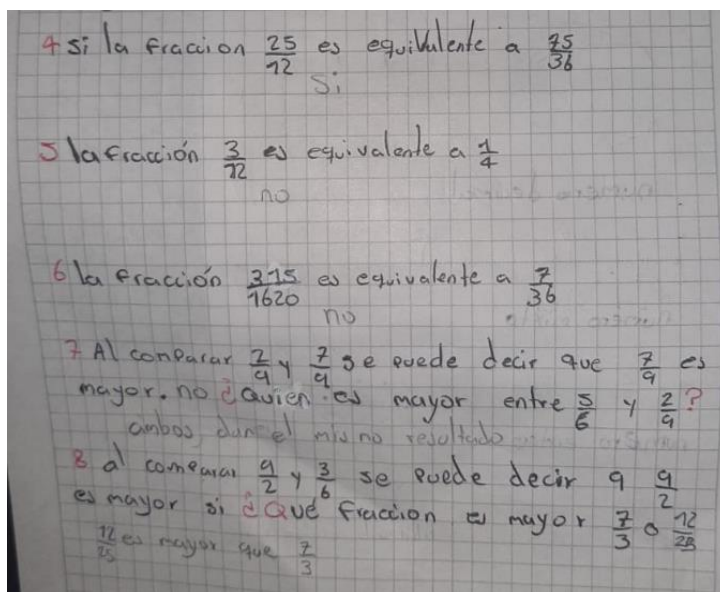 4 si la fraccion 25/12 es equivalente a 75/36
Si
5 la fracción 3/12 es equivalente a 1/4
no
6 la fracción 315/1620 es equivalente a 7/36
no
7 Al comparar 2/9 y 7/9 se puede decir que 7/9 es
mayor. no ¿Quien es mayor entre 5/6 y 2/9?
ambos dan el mismo resultado
8 al comparar 9/2 y 3/6 se puede decir q 9/2
es mayor si ¿Qué fraccion es mayor 7/3 o 12/25
12/25 es mayor que 7/3